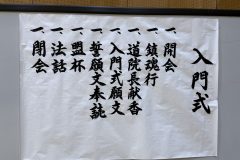 入門式
一、開会
一、鎮魂行
一、道院長献香
一、入門式願文
一、誓願文奉読
一、盟杯
一、法話
一、閉会